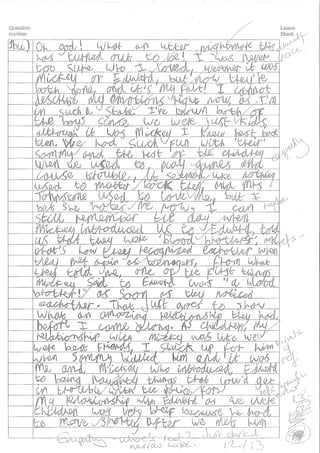 Question number
Leave Blank
Oh God! What an utter nightmare this
was turned out to be! I was never
too sure who I loved, weather it was
Mickey or Edward, but now they're
both gone, and it's my fault! I cannot
describe my emotions right now, as I'm
in such a state. I've known both of
the boys since we were just kids
although it was Mickey I knew best back
then. We had such fun with their
Sammy and the rest of the children
when we used to play games and
cause trouble, it seemed like nothing
used to matter back then, and Mrs
Johnstone used to love me, but I
bet she hates me now. I can
still remember the day when
Mickey introduced us to Edward, told
us that they were 'blood brothers', and
that's how they recognized eachother when
they met again as teenagers. From what
they told me, one of the first things
Mickey said to Edward was "a blood
brother!" as soon as they noticed
eachother. That just goes to show
what an amazing relationship they had
before I come along. As children, my
relationship with Mickey was like we
were best friends, I stuck up for him
when Sammy bullied him and it was
me and Mickey who introduced Edward
to being naughty things that you'd get
in trouble with the police for.
My relationship with Edward as we were
children was very breif because he had
to move shortly after we met him
empathy
Empathy - where's rest? Just started
narrow scope. 12/13
13